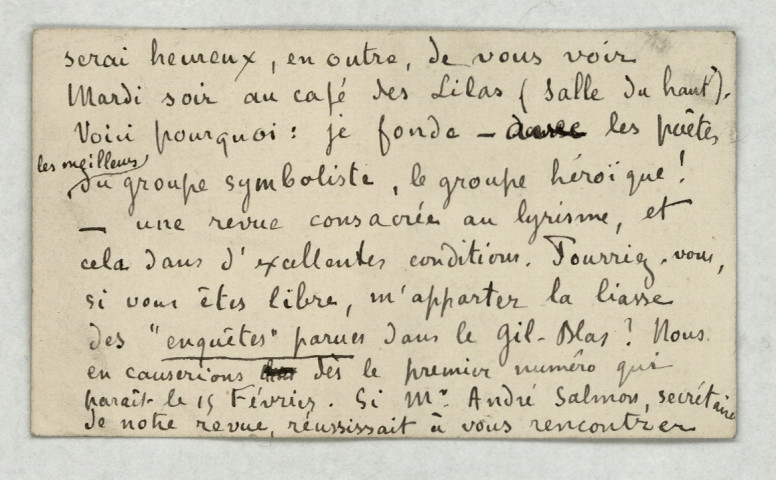 serai heureux, en outre, de vous voir
Mardi soir au café des Lilas (salle du haut).
Voici pourquoi : je fonde – avec les poètes
les meilleurs
du groupe symboliste, le groupe héroïque !
– une revue consacrée au lyrisme, et
cela dans d'excellentes conditions. Pourriez-vous,
si vous êtes libre, m'apporter la liasse
des "enquêtes" parues dans le Gil-Blas ? Nous
en causerions dès le premier numéro qui
paraît le 15 Février. Si Mr. André Salmon, secrétaire
de notre revue, réussissait à vous rencontrer